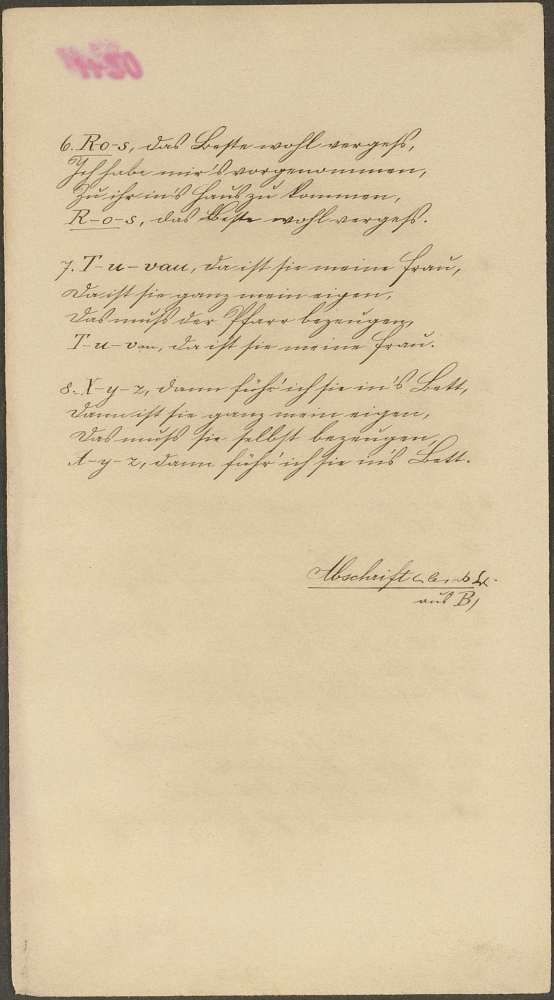 6. R-o-s, das Beste wohl vergeß,
Ich habe mir's vorgenommen,
Zu ihr in's Haus zu kommen,
R-o-s, das Beste wohl vergeß.
7. T-u-vau, da ist sie meine Frau,
Da ist sie ganz mein eigen,
Das muß der Pfarr bezeugen,
T-u-vau, da ist sie meine Frau.
8. X-y-z, dann führ' ich sie in's Bett,
Dann ist sie ganz mein eigen,
Das muß sie selbst bezeugen,
X-y-z, dann führ' ich sie ins Bett.
Abschrift
aus B)